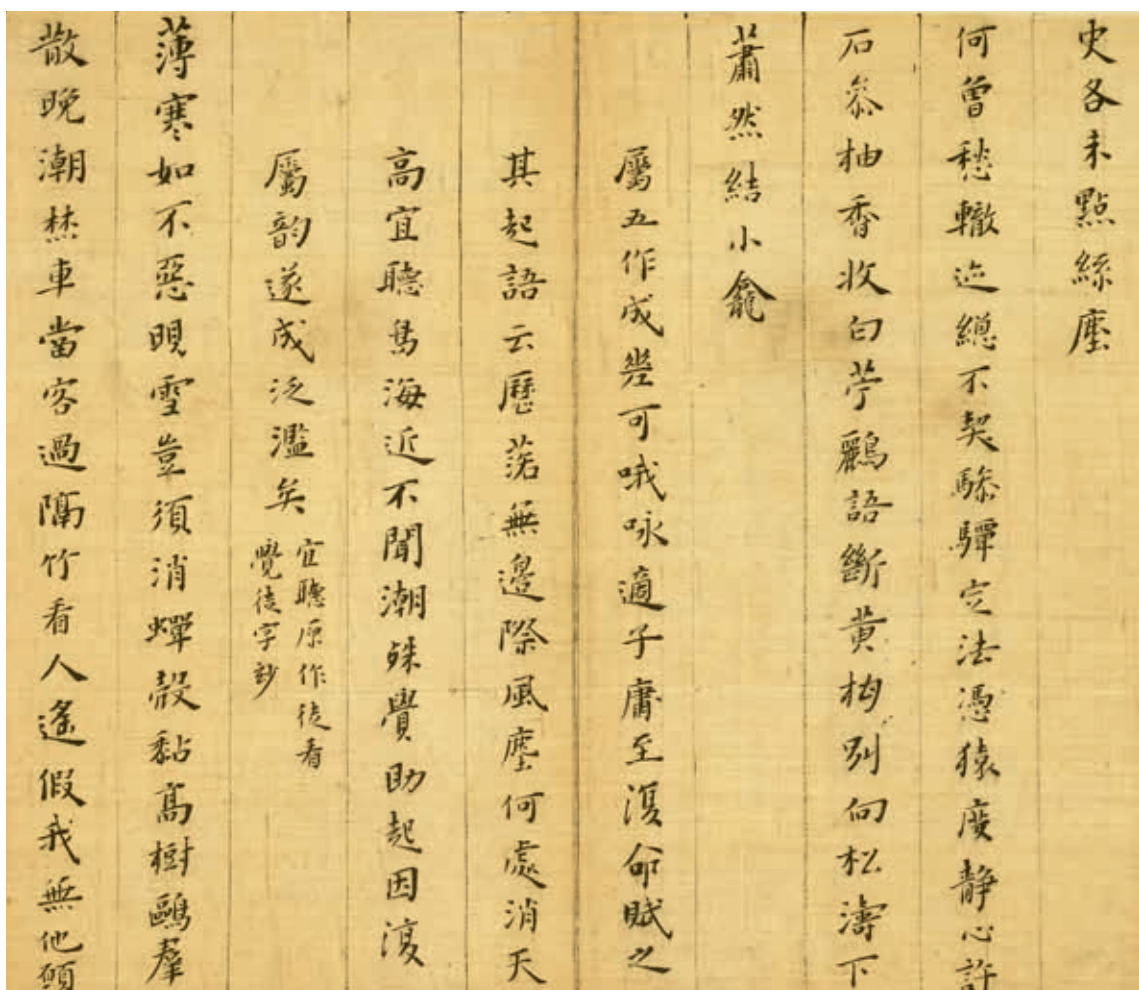 史各未點絲塵
何曾愁轍迹總不契驂驔定法憑猿度静心許
石叅柚香收白苧鸝語斷黄柑别向松濤下
蕭然結小龕
屬五作成幾可哦咏適子庸至復命賦之
其起語云歷落無邊際風塵何處消天
高宜聽鳥海近不聞潮殊覺助起因復
屬韵遂成泛濫矣
宜聽原作徒看
覺徒字妙
薄寒如不惡晛雪豈須消蟬殼黏高樹鷗羣
散晚潮焚車當客過隔竹看人遙假我無他願